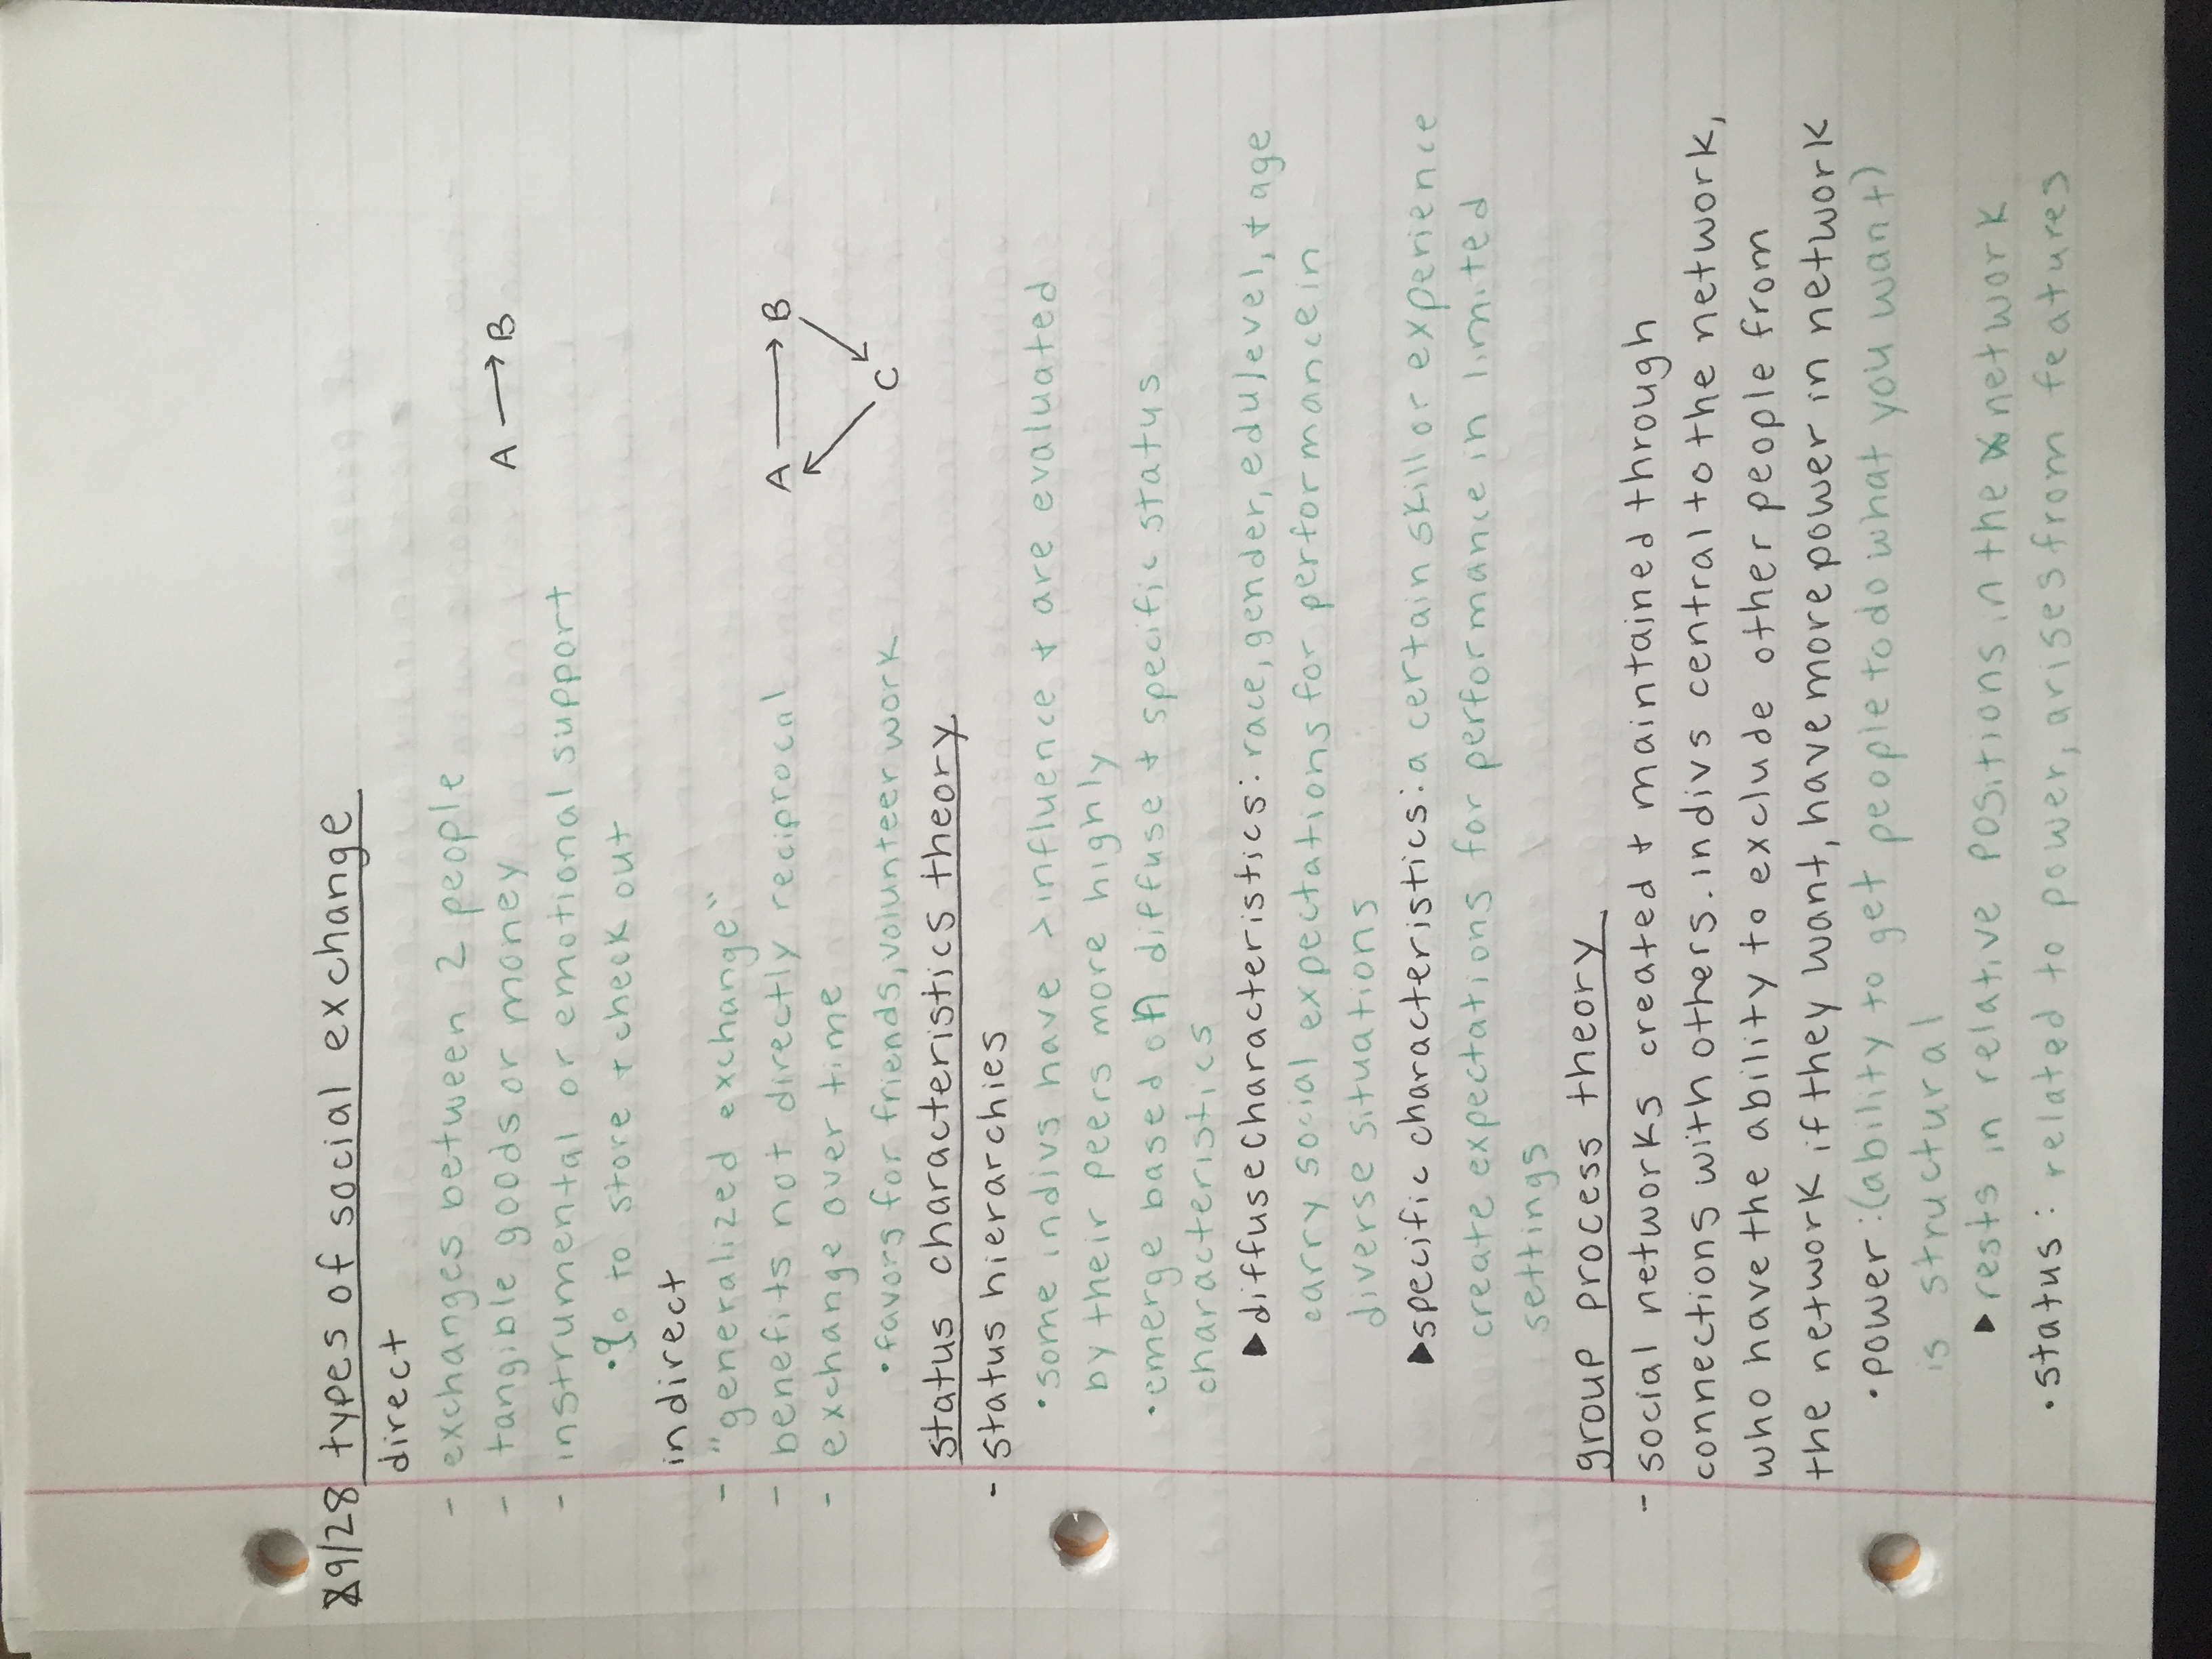 9/28 types of social exchange
direct
- exchanges between 2 people
- tangible goods or money
A → B
- instrumental or emotional support
• go to store + check out
indirect
- "generalized exchange"
- benefits not directly reciprocal
- exchange over time
• favors for friends, volunteer work
A → B
C
status characteristics theory
- status hierarchies
• some indivs have > influence + are evaluated
by their peers more highly
• emerge based on diffuse + specific status
characteristics
▶ diffuse characteristics: race, gender, edu level, + age
carry social expectations for performance in
diverse situations
▶ specific characteristics: a certain skill or experience
create expectations for performance in limited
settings
group process theory
- social networks created + maintained through
connections with others. indivs central to the network,
who have the ability to exclude other people from
the network if they want, have more power in network
• power: (ability to get people to do what you want)
is structural
▶ rests in relative positions in the network
• status: related to power, arises from features